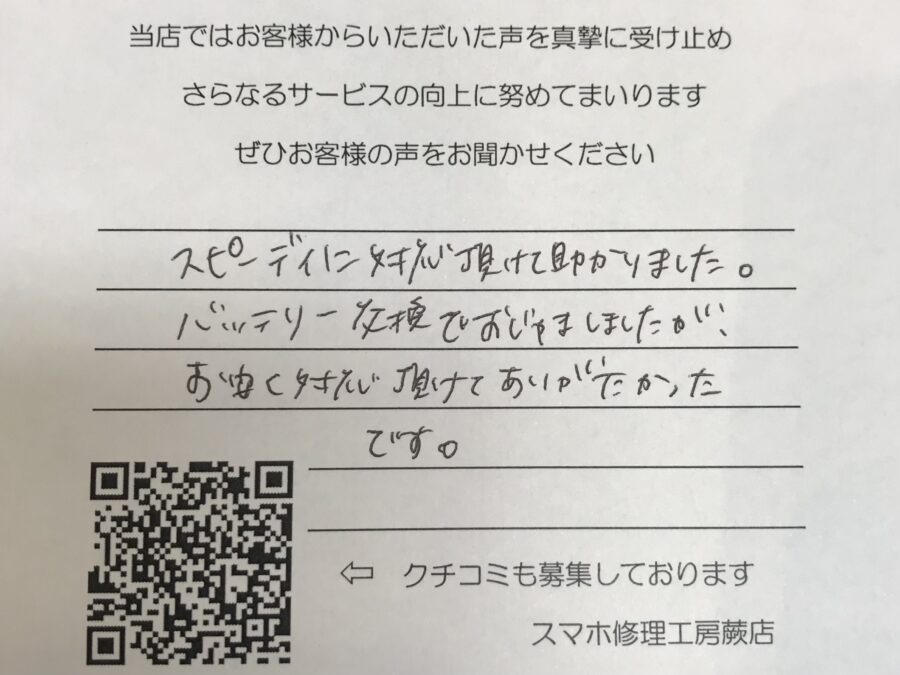 当店ではお客様からいただいた声を真摯に受け止め
さらなるサービスの向上に努めてまいります
ぜひお客様の声をお聞かせください
スピーディに対応頂けて助かりました。
バッテリー交換でおじゃましましたが、
お安く対応頂けてありがたかった
です。
⇦ クチコミも募集しております
スマホ修理工房蕨店